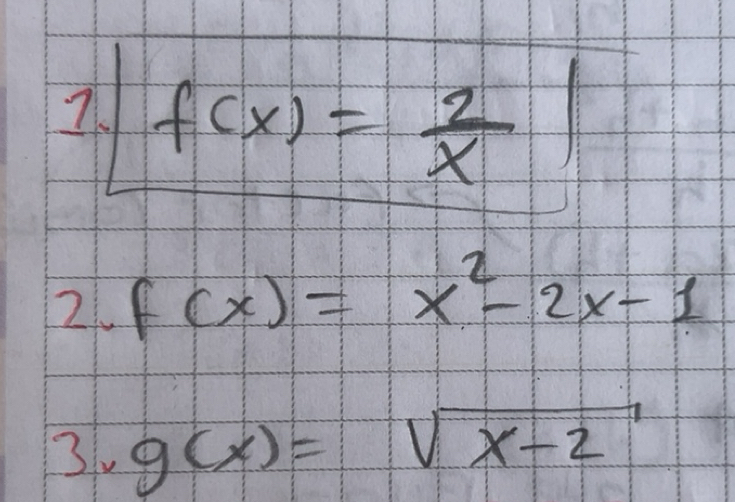 1. f(x) = 2/x
2. f(x) = x² - 2x - 1
3. g(x) = √x-2